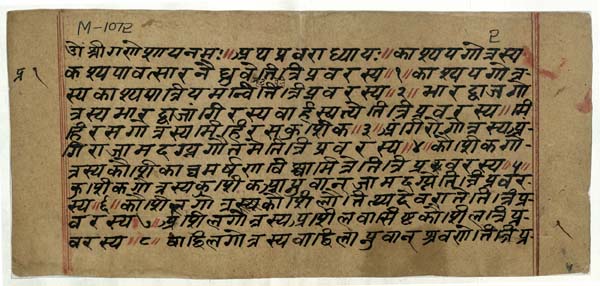 M-1072
2
ओं श्रीगणेशायनमः॥ प्रथप्रवराध्यायः॥ काश्यपगोत्रस्य
कश्यपावत्सारनैध्रुवेतित्रिप्रवरस्य॥१॥ काश्यपगोत्र-
स्यकाश्यपात्रियमन्वितित्रिप्रवरस्य॥२॥ भारद्वाजगो
त्रस्यभारद्वाजांगिरस्यवार्हस्यत्येतित्रिप्रवरस्य॥ मि
हिरसगोत्रस्यमिहिरसकुशिक॥३॥ प्रंगिरोगोत्रस्यप्रं-
गिराजामदग्न्यगौतमेतित्रिप्रवरस्य॥४॥ कौशिकगो-
त्रस्यकौशिकाघमर्षणविश्वामित्रेतित्रिप्रवरस्य॥५॥
कुशिकगोत्रस्यकुशिक जामदग्नेतित्रिप्रवर-
स्य॥६॥ कौशिलगोत्रस्यकौशिला देवरातेतित्रिप्र-
वरस्य॥७॥ प्रशिलगोत्रस्य प्रशिलवासिष्टकौशिलत्रिप्र-
वरस्य॥८॥ शांडिलगोत्रस्य त्रिप्र-